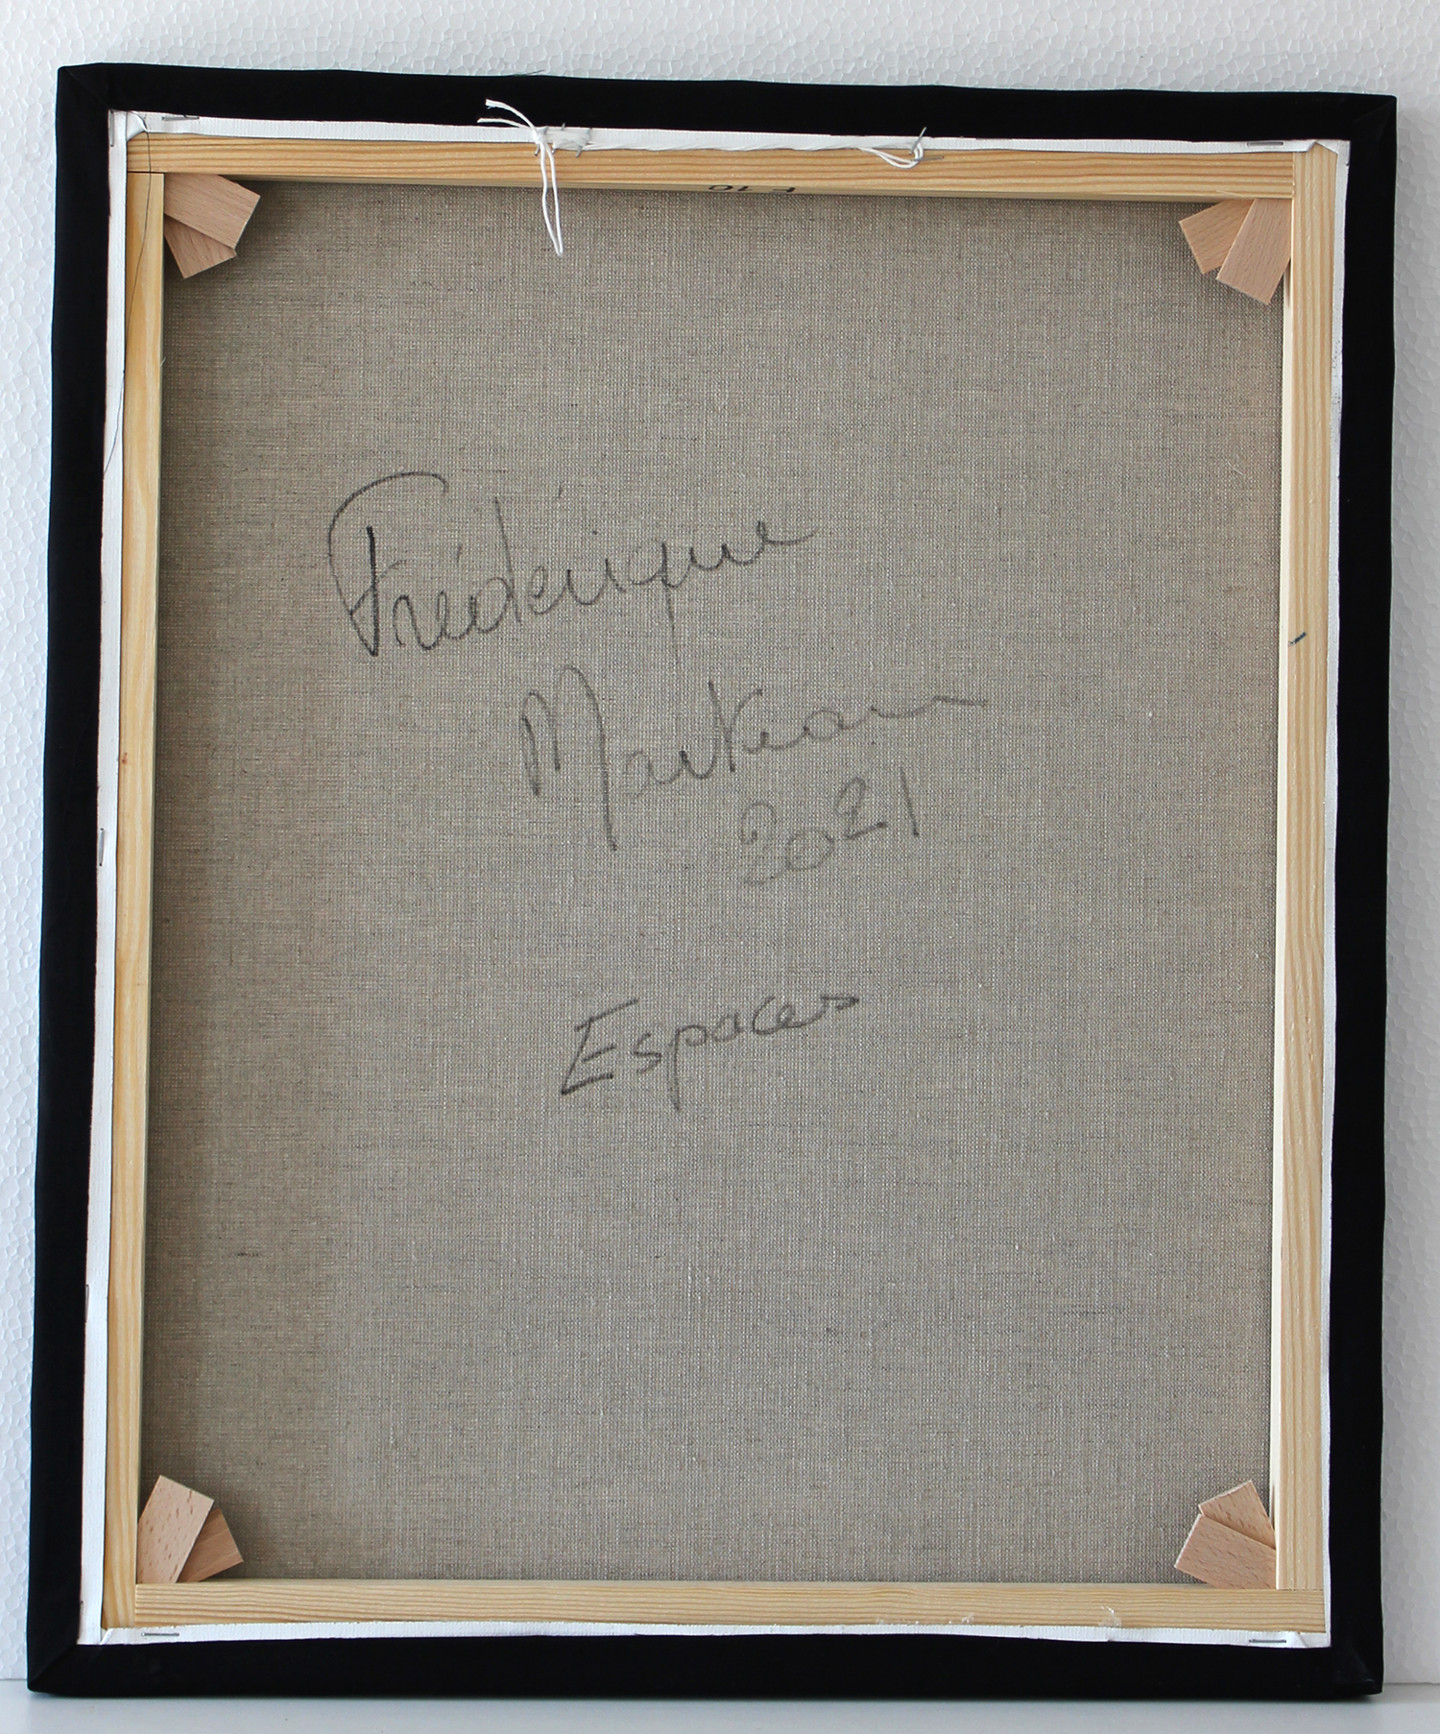 F 10
Frédérique
Marteau
2021
Espaces